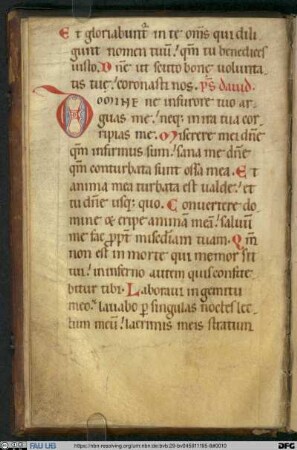 Et gloriabunt̃ in te om̃s qui dili
gunt nomen tuũ; qm̃ tu benedices
iusto. Dñe ut scuto bone volunta
tis tue; coronasti nos. ps̃ dauid.
DOMINE ne in furore tuo ar
guas me; neq; in ira tua cor
ripias me. Miserere mei dñe
qm̃ infirmus sum; sana me dñe
qm̃ conturbata sunt ossa mea. Et
anima mea turbata est ualde; et
tu dñe usq; quo. Conuertere do
mine & eripe animam meã; saluũ
me fac ꝓpt̃ mis̃ediam tuam. Qm̃
non est in morte qui memor sit
tui; in inferno autem quis confite
bitur tibi. Laboraui in gemitu
meo; lauabo ꝑ singulas noctes lec
tum meũ; lacrimis meis stratum
FAU UB
DFG